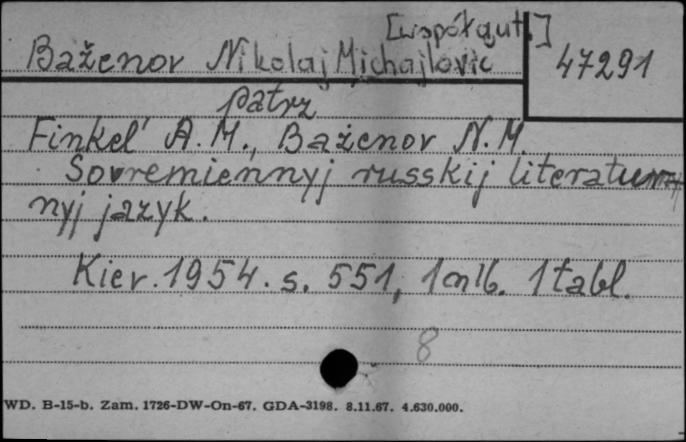 [współaut.]
Baženov Nikolaj Michajlovic
47291
patrz
Finkel' A. M., Baženov N. M.
Sovremiennyj russkij literaturnyj
nyj jazyk.
Kiev. 1954. s. 551, 1 nlb. 1 tabl.
8
WD. B-15-b. Zam. 1726-DW-On-67. GDA-3198. 8.11.67. 4.630.000.